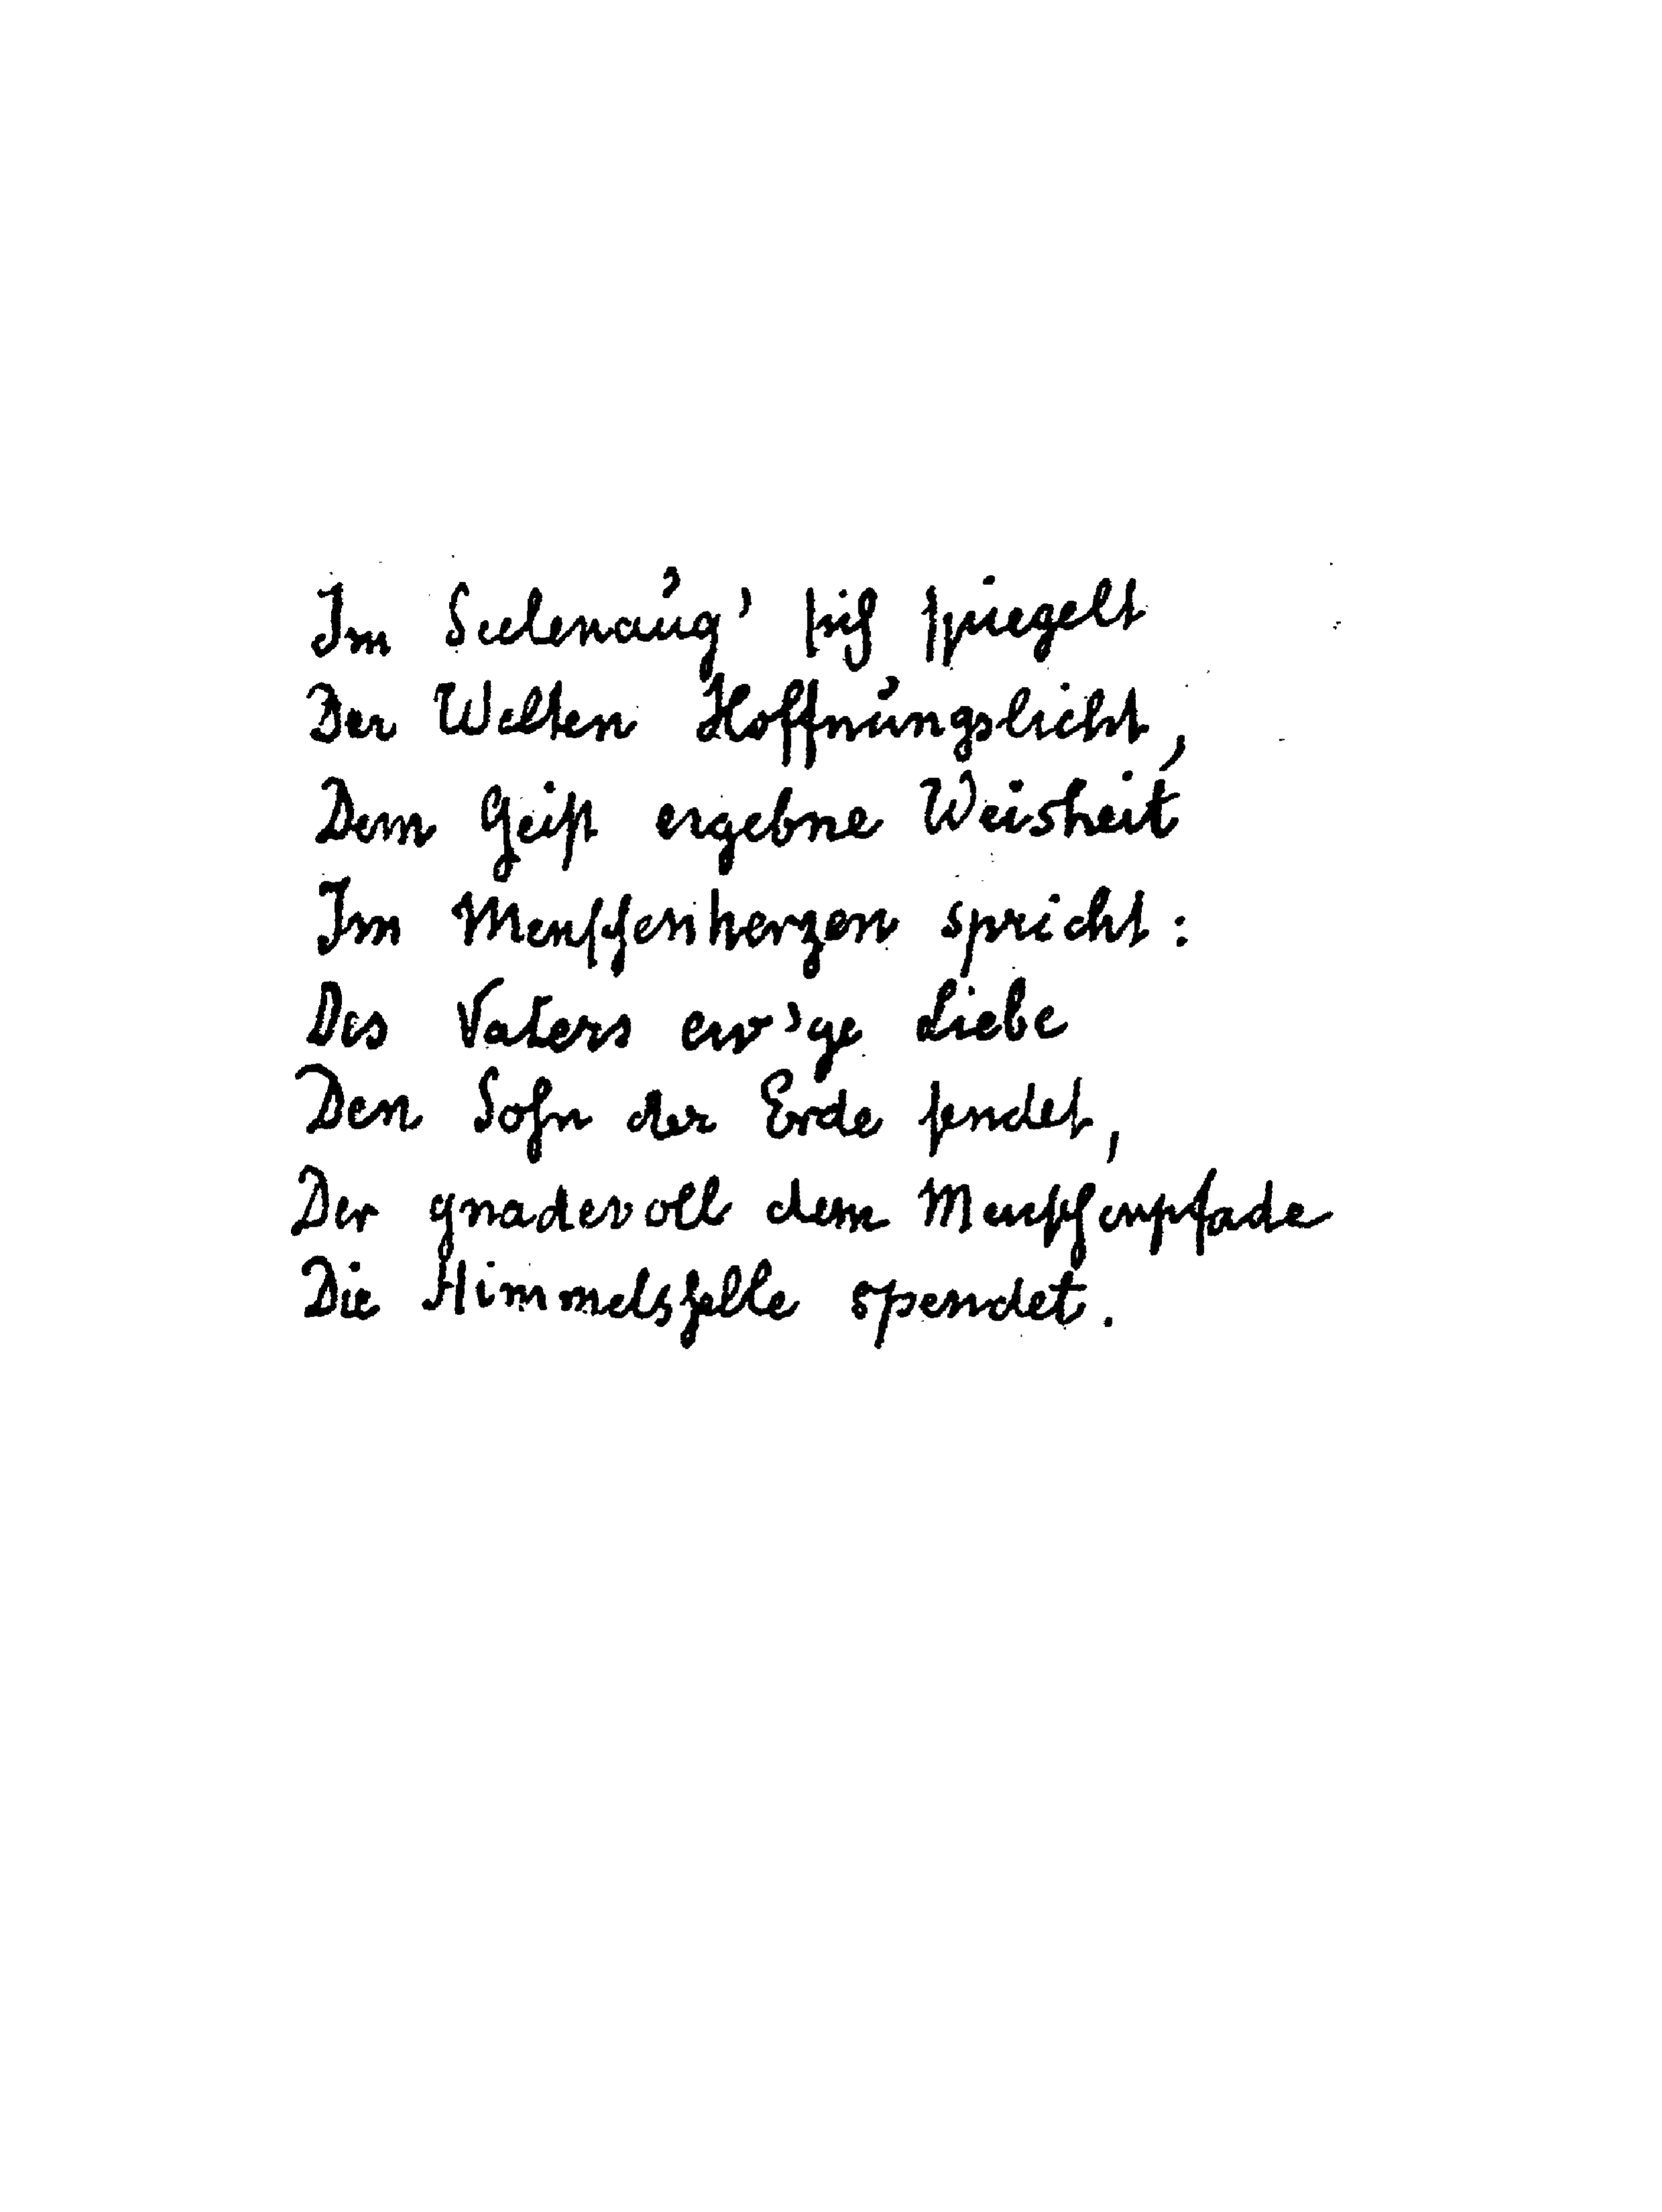 Im Seelenaug' sich spiegelt
Der Welten Hoffnungslicht,
Dem Geist ergebne Weisheit
Im Menschenherzen spricht:
Des Vaters ew'ge Liebe
Den Sohn der Erde sendet,
Der gnadevoll dem Menschenpfade
Die Himmelshelle spendet.